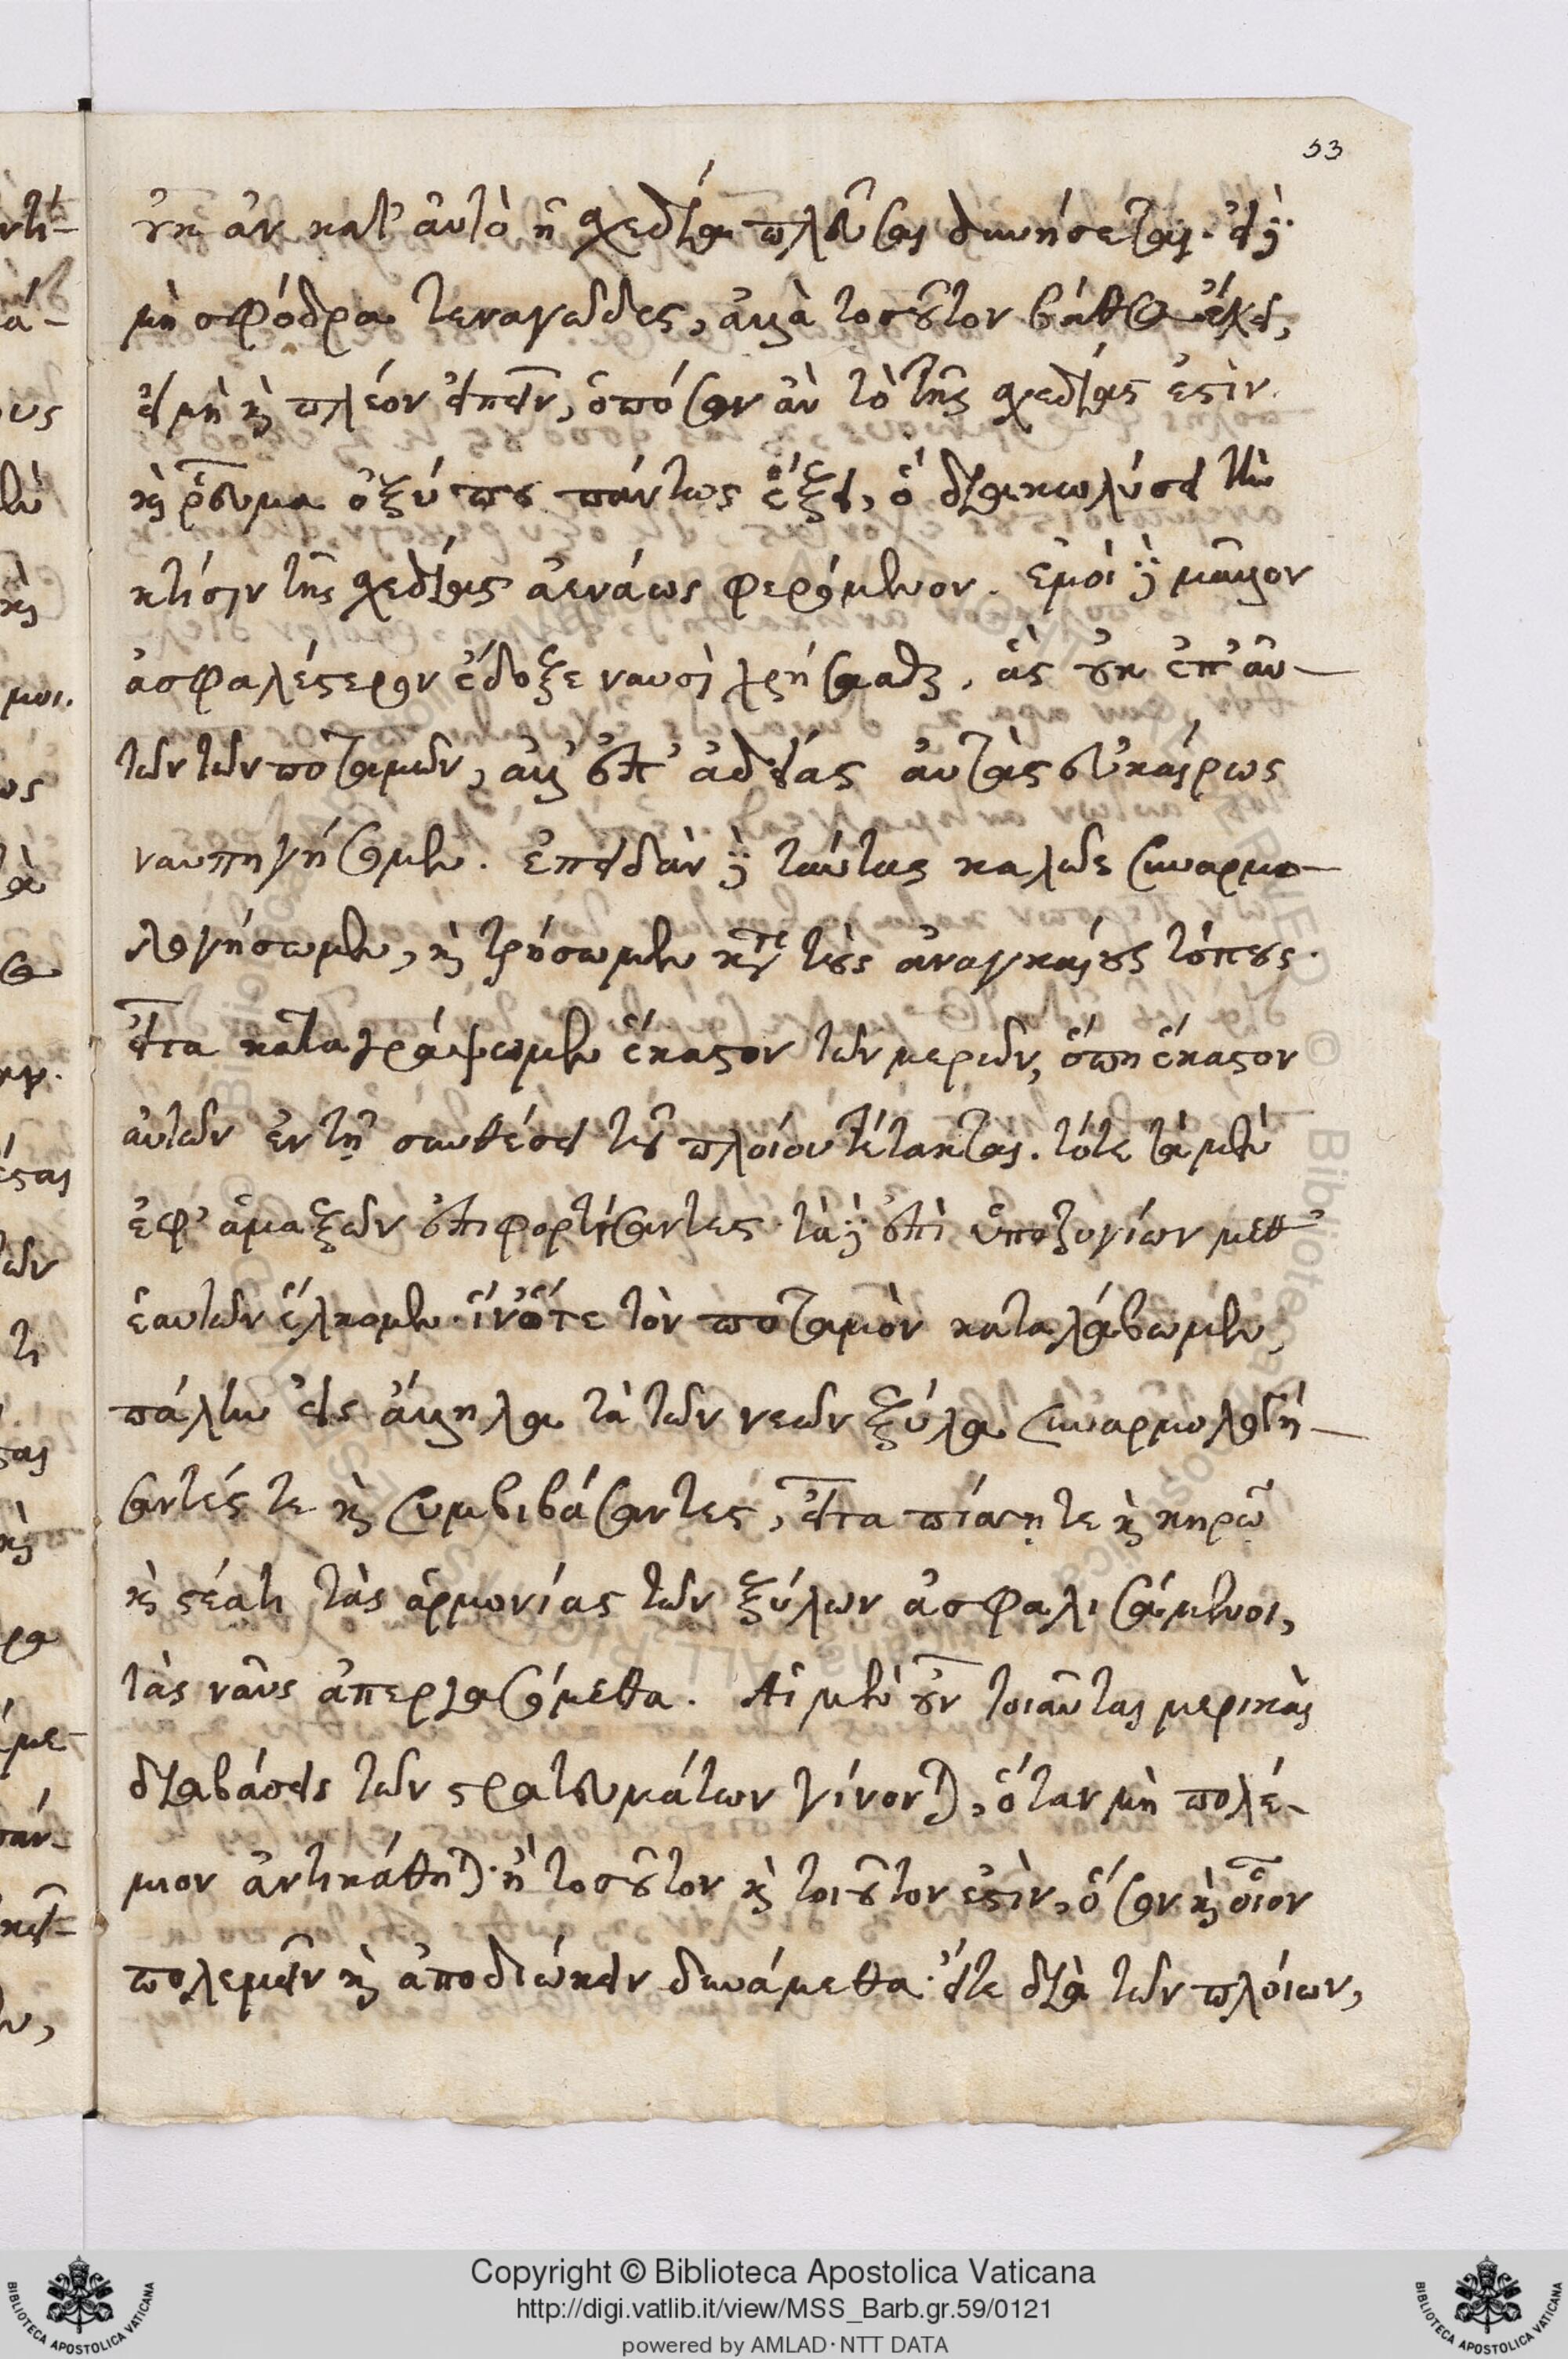 53
οὐκ ἂν κατ' αὐτὸ ἡ σχεδία πλεῦσαι δυνήσεται. εἰ δὲ
μὴ σφόδρα τεναγῶδες, ἀλλὰ τοσοῦτον βάθος ἔχει,
εἰ μὴ καὶ πλέον εἰπεῖν, ὁπόσον ἂν τὸ τῆς σχεδίας ἐστὶν.
καὶ ῥεῦμα ὀξύ που πάντως ἕξει, ὃ διακωλύσει τὴν
κτίσιν τῆς σχεδίας ἀενάως φερόμενον. ἐμοὶ δὲ μᾶλλον
ἀσφαλέστερον ἔδοξε ναυσὶ χρήσασθαι, ἃς οὐκ ἐπ' αὐ-
τῶν τῶν ποταμῶν, ἀλλ' ἐπ' ἀδείας αὐτὰς εὐκαίρως
ναυπηγήσομεν. ἐπειδὰν δὲ ταύτας καλῶς συναρμο-
λογήσωμεν, καὶ τρήσωμεν κατά τε τοὺς ἀναγκαίους τόπους.
εἶτα καταγράψομεν ἕκαστον τῶν μερῶν, ὅπη ἕκαστον
αὐτῶν ἐν τῇ συνθέσει τοῦ πλοίου τέτακται. τότε τὰ μὲν
ἐφ' ἁμαξῶν ἐπιφορτίσαντες. τὰ δὲ ἐπὶ ὑποζυγίων μεθ'
ἑαυτῶν ἕλκομεν. ἵν' ὅτε τὸν ποταμὸν καταλάβωμεν,
πάλιν εἰς ἄλληλα τὰ τῶν νεῶν ξύλα συναρμολογή-
σαντές τε καὶ συμβιβάσαντες, εἶτα πίσσῃ τε καὶ κηρῷ
καὶ στέατι τὰς ἁρμονίας τῶν ξύλων ἀσφαλισάμενοι,
τὰς ναῦς ἀπεργασόμεθα. Αἱ μὲν οὖν τοιαῦται μερικαὶ
διαβάσεις τῶν στρατευμάτων γίνονται, ὅταν μὴ πολέ-
μιον ἀντικάθηται. ἢ τοσοῦτον καὶ τοιοῦτον ἐστὶν, ὅσον καὶ οἷον
πολεμεῖν καὶ ἀποδιώκειν δυνάμεθα. εἴτε διὰ τῶν πλοίων,
Copyright © Biblioteca Apostolica Vaticana
http://digi.vatlib.it/view/MSS_Barb.gr.59/0121
powered by AMLAD·NTT DATA